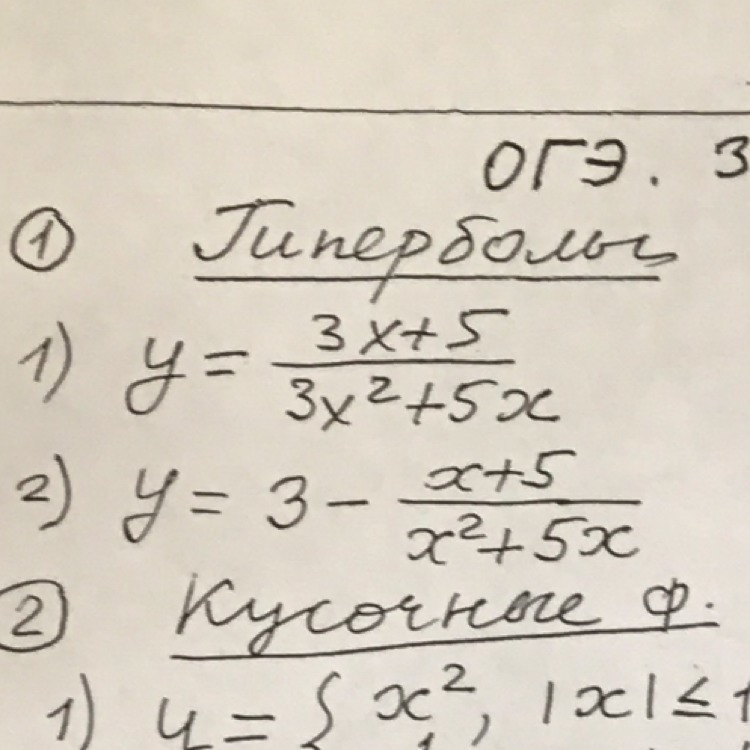 ОГЭ. 3
① Гиперболы
1) y = (3x+5)/(3x²+5x)
2) y = 3 - (x+5)/(x²+5x)
② Кусочные ф.
1) y = { x², |x| ≤ 1